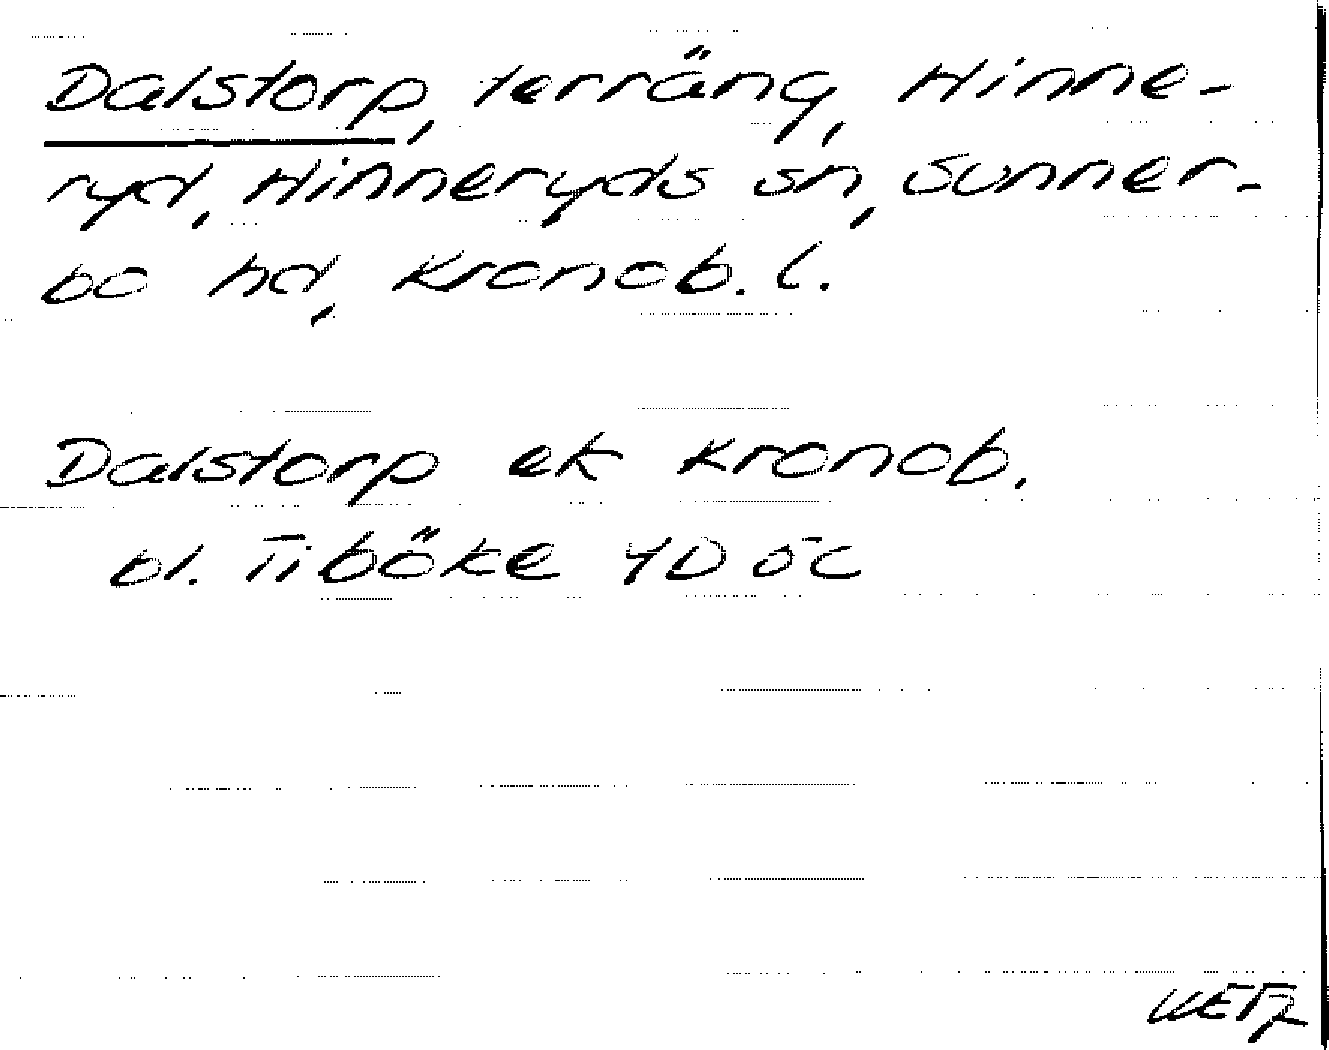 Dalstorp, terräng, Hinne-
ryd, Hinneryds sn, Sunner-
bo hd, Kronob. l.
Dalstorp ek Kronob.
bl. Tiböke 4D öc